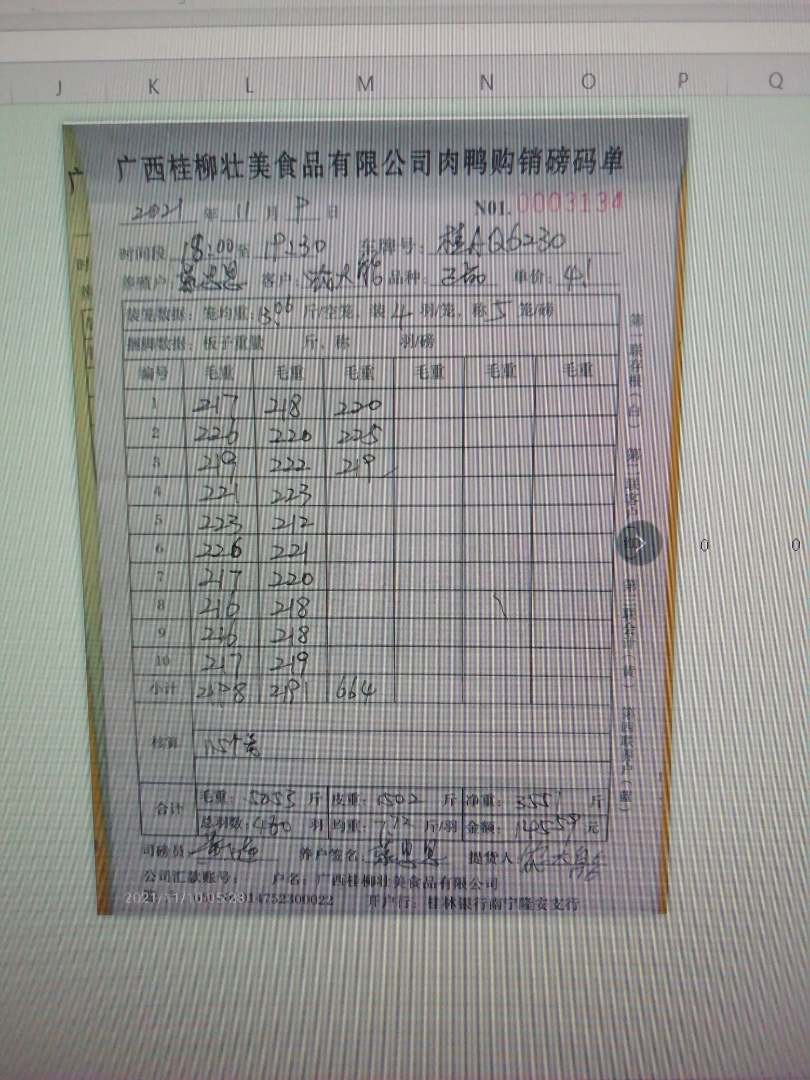 J K L M N O P Q
广
广西桂柳壮美食品有限公司肉鸭购销磅码单
2021 年 11 月 9 日 N01. 0003134
时
时间段 18:00 至 19:30 车牌号: 桂AQ6230
养殖户: 客户: 品种: 单价: 4.1
装笼数据: 笼均重: 13.06 斤/空笼, 装 4 羽/笼, 称 5 笼/磅
捆脚数据: 板子重量 斤, 称 羽/磅
编号 毛重 毛重 毛重 毛重 毛重 毛重
1 217 218 220
2 226 220 225
3 219 222 219
4 221 223
5 223 212
6 226 221
7 217 220
8 216 218
9 216 218
10 217 219
小计 2198 2191 664
核算 115个笼
合计 毛重: 5053 斤 皮重: 1502 斤 净重: 3551 斤
总羽数: 460 羽 均重: 7.72 斤/羽 金额: 14559 元
司磅员 养户签名: 提货人:
公司汇款账号: 户名: 广西桂柳壮美食品有限公司
2021/11/10 05:23 14752300022 开户行: 桂林银行南宁隆安支行
第一联存根(白) 第二联客户 第三联会计(黄) 第四联养户(蓝)
0 0